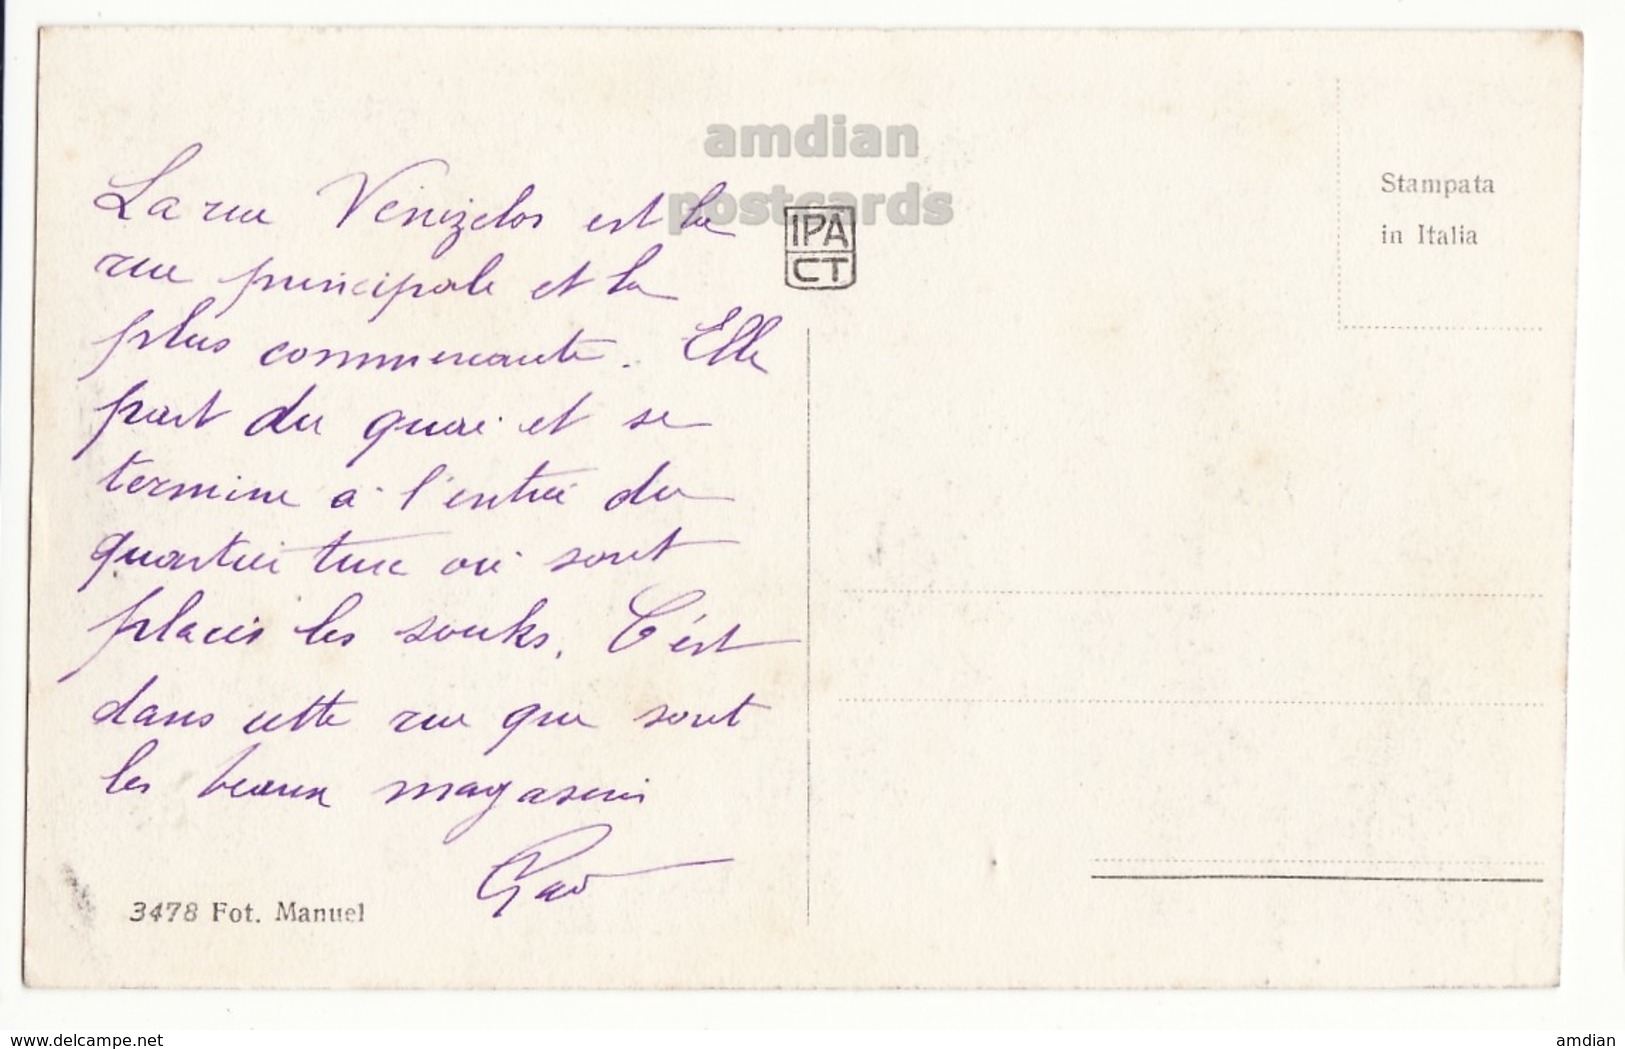 amdian
postcards
La rue Venizelos est la
rue principale et la
plus commerçante. Elle
part du quai et se
termine à l'entrée du
quartier turc où sont
placés les souks. C'est
dans cette rue que sont
les beaux magasins
3478 Fot. Manuel
IPA
CT
Stampata
in Italia
www.delcampe.net
amdian